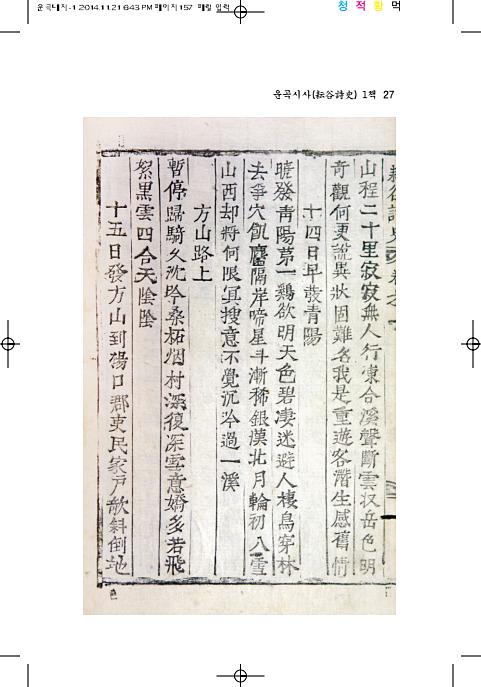 운곡대지-1 2014.11.21 6:43 PM 페이지157 매킬 일력
청 적 황 먹
운곡시사(耘谷詩史) 1책 27
山程二十里寂寂無人行凍合溪聲斷雲收岳色明
奇觀何更說異狀固難名我是重遊客潛生感舊情
十四日早發青陽
曉發青陽第一鷄欲明天色碧凄迷避人棲鳥穿林
去爭穴飢麕隔岸啼星斗漸稀銀漢北月輪初入雪
山西却將何限冥搜意不覺沉吟過一溪
方山路上
暫停歸騎久沈吟桑柘烟村深復深雪意嬌多若飛
絮黑雲四合天陰陰
十五日發方山到楊口郡吏民家戶欹斜倒地